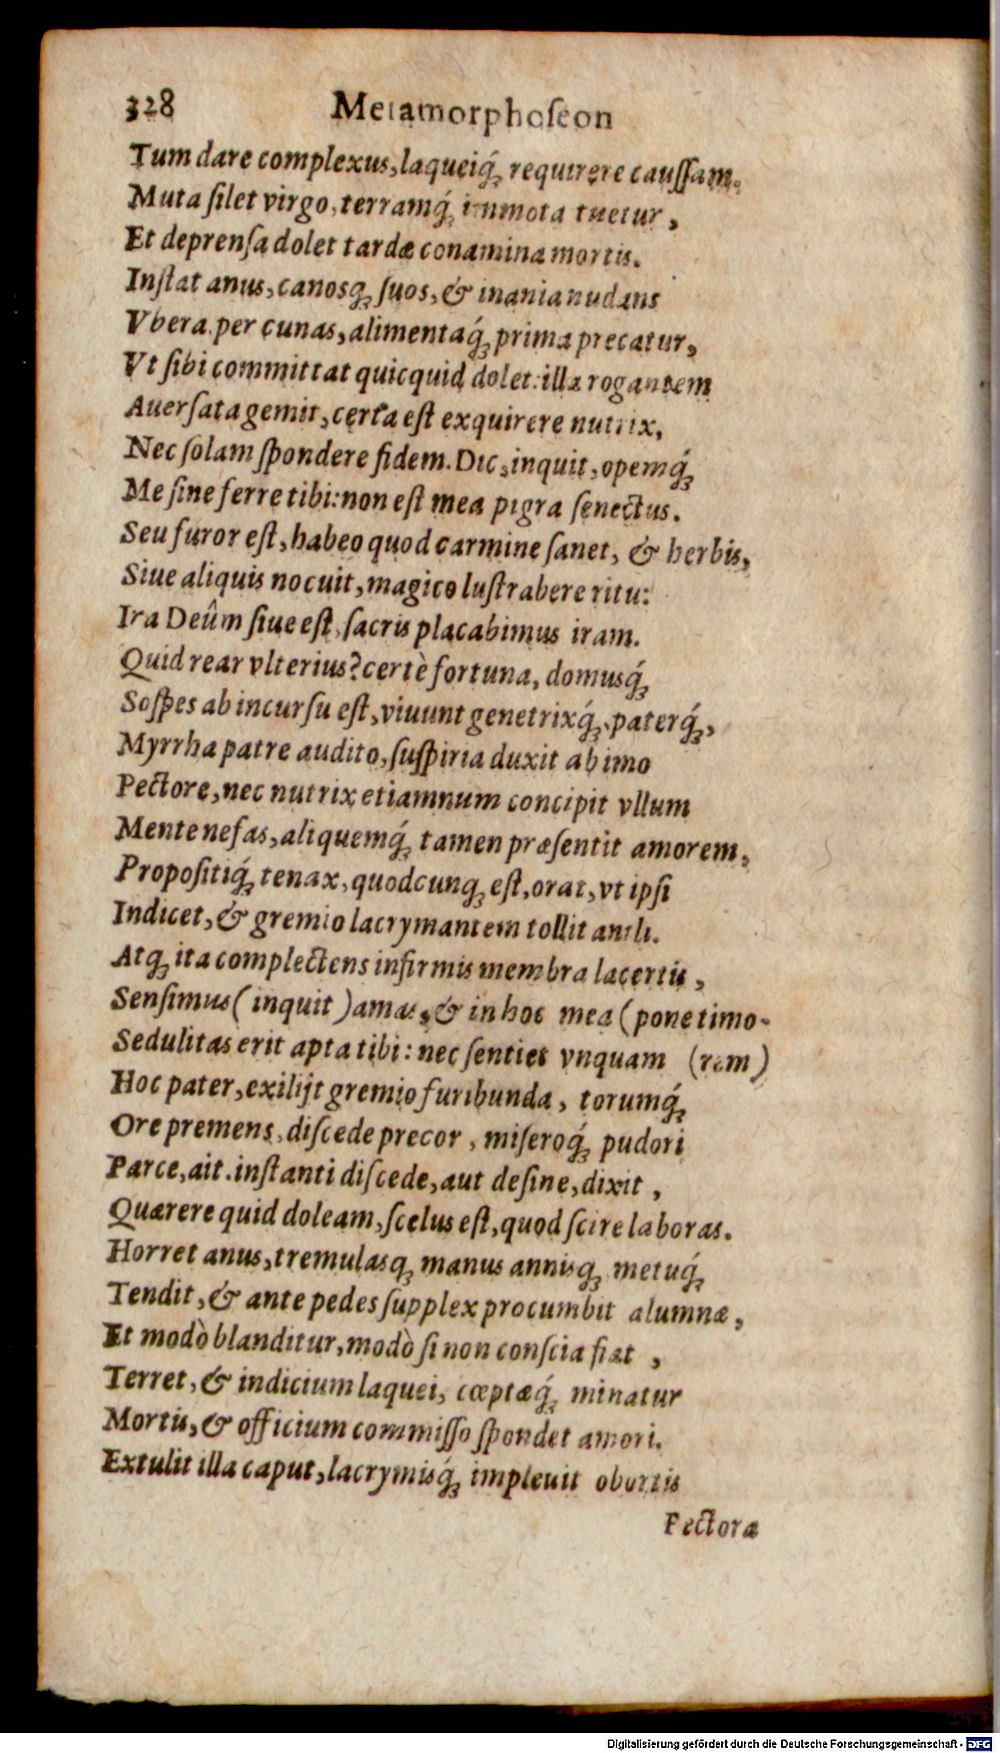 328 Metamorphoſeon
Tum dare complexus, laqueiq́ꝫ requirere cauſſam.
Muta ſilet virgo, terramq́ꝫ immota tuetur,
Et deprenſa dolet tardæ conamina mortis.
Inſtat anus, canosqꝫ ſuos, & inania nudans
Vbera, per cunas, alimentaq́ꝫ prima precatur,
Vt ſibi committat quicquid dolet: illa rogantem
Auerſata gemit, certa eſt exquirere nutrix,
Nec ſolam ſpondere fidem. Dic, inquit, opemq́ꝫ
Me ſine ferre tibi: non eſt mea pigra ſenectus.
Seu furor eſt, habeo quod carmine ſanet, & herbis,
Siue aliquis nocuit, magico luſtrabere ritu:
Ira Deûm ſiue eſt, ſacris placabimus iram.
Quid rear vlterius? certè fortuna, domusq́ꝫ
Soſpes ab incurſu eſt, viuunt genetrixq́ꝫ, paterq́ꝫ,
Myrrha patre audito, ſuſpiria duxit ab imo
Pectore, nec nutrix etiamnum concipit vllum
Mente nefas, aliquemq́ꝫ tamen præſentit amorem,
Propoſitiq́ꝫ tenax, quodcunqꝫ eſt, orat, vt ipſi
Indicet, & gremio lacrymantem tollit anili.
Atqꝫ ita complectens infirmis membra lacertis,
Senſimus (inquit) amas, & in hoc mea (pone timo-
Sedulitas erit apta tibi: nec ſentiet vnquam (rem)
Hoc pater, exilijt gremio furibunda, torumq́ꝫ
Ore premens, diſcede precor, miſeroq́ꝫ pudori
Parce, ait. inſtanti diſcede, aut deſine, dixit,
Quærere quid doleam, ſcelus eſt, quod ſcire laboras.
Horret anus, tremulasqꝫ manus annisqꝫ metuq́ꝫ
Tendit, & ante pedes ſupplex procumbit alumnæ,
Et modò blanditur, modò ſi non conſcia fiat,
Terret, & indicium laquei, cœptæq́ꝫ minatur
Mortis, & officium commiſſo ſpondet amori.
Extulit illa caput, lacrymisq́ꝫ impleuit obortis
Pectora
Digitalisierung gefördert durch die Deutsche Forschungsgemeinschaft - DFG